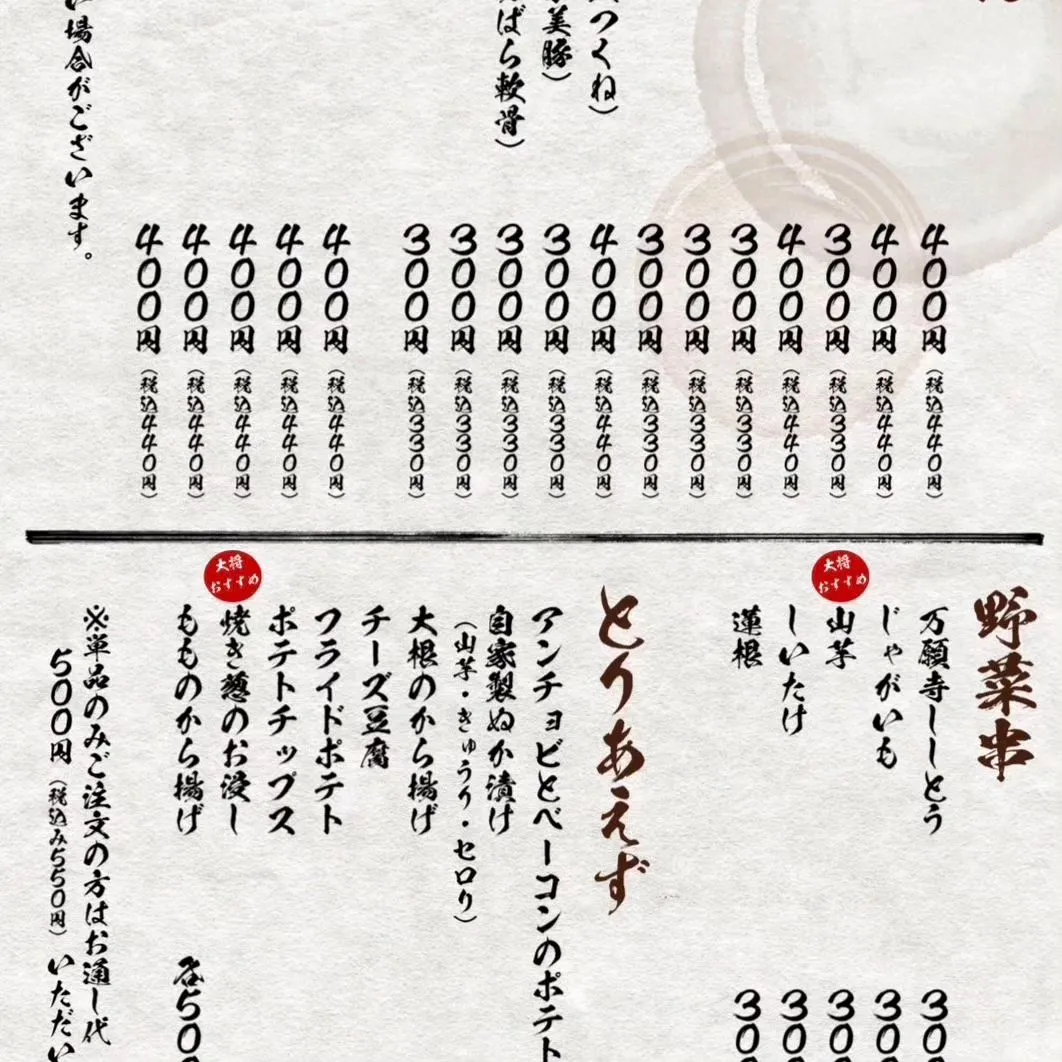 400円（税込440円）
400円（税込440円）
300円（税込330円）
400円（税込440円）
300円（税込330円）
300円（税込330円）
300円（税込330円）
つくね）
400円（税込440円）
美豚）
300円（税込330円）
ばら軟骨）
300円（税込330円）
300円（税込330円）
300円（税込330円）
400円（税込440円）
400円（税込440円）
400円（税込440円）
400円（税込440円）
400円（税込440円）
場合がございます。
野菜串
万願寺ししとう 30
じゃがいも 30
大将
おすすめ
山芋 30
しいたけ 30
蓮根 30
とりあえず
アンチョビとベーコンのポテト
自家製ぬか漬け
（山芋・きゅうり・セロリ）
大根のから揚げ
チーズ豆腐
フライドポテト
ポテトチップス
大将
おすすめ
焼き葱のお浸し
もものから揚げ 各50
※単品のみご注文の方はお通し代
500円（税込み550円）いただい